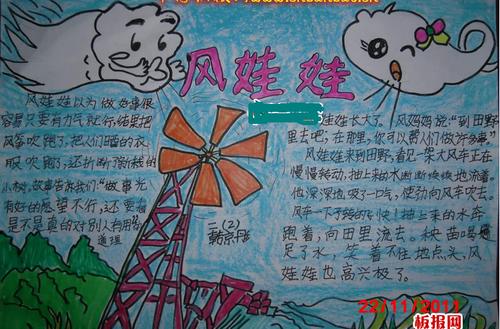 风娃娃
风娃娃以为做好事很
容易,只要有力气就行,结果把
风筝吹跑了,把人们晒的衣
服吹跑了,还折断了新栽的
小树。故事告诉我们:"做事光
有好的愿望不行,还要看
是不是真的对别人有用的
道理
二(2)
娃娃长大了。风妈妈说:"到田野
里去吧,在那里,你可以帮人们做许多事。"
风娃娃来到田野,看见一架大风车正在
慢慢转动,抽上来的水断断续续地流着。
他深深地吸了一口气,使劲向风车吹去。
风车一下子转得飞快!抽上来的水奔
跑着,向田里流去。秧苗喝
足了水,笑着不住地点头,风
娃娃也高兴极了。
22/11/2011
板报网